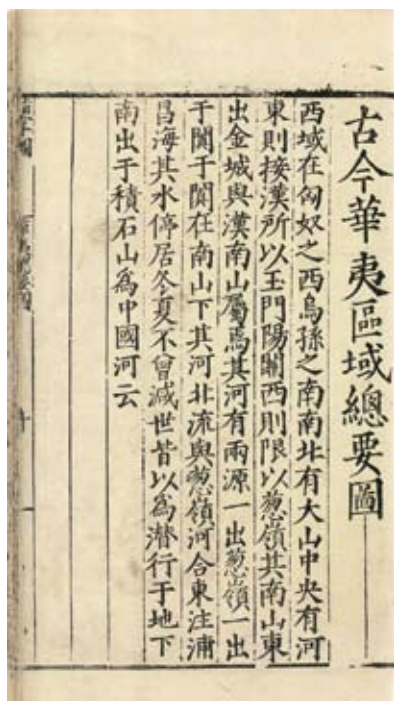 古今華夷區域總要圖
西域在匈奴之西烏孫之南南北有大山中央有河
東則接漢所以玉門陽關西則限以葱嶺其南山東
出金城與漢南山屬焉其河有兩源一出葱嶺一出
于闐于闐在南山下其河北流與葱嶺河合東注蒲
昌海其水停居冬夏不曾減世皆以為潛行于地下
南出于積石山為中國河云